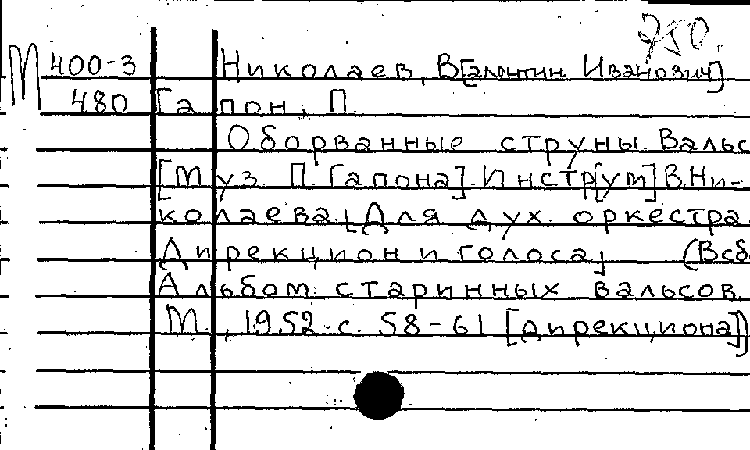 750.
М 400-3 Николаев, В[алентин Иванович]
480 Гапон, П.
Оборванные струны. Вальс
[Муз. П. Гапона]. Инстр[ум] В. Ни-
колаева. [Для дух. оркестра.
Дирекцион и голоса] (В сб.
Альбом старинных вальсов.
М., 1952. с. 58-61 [дирекциона])